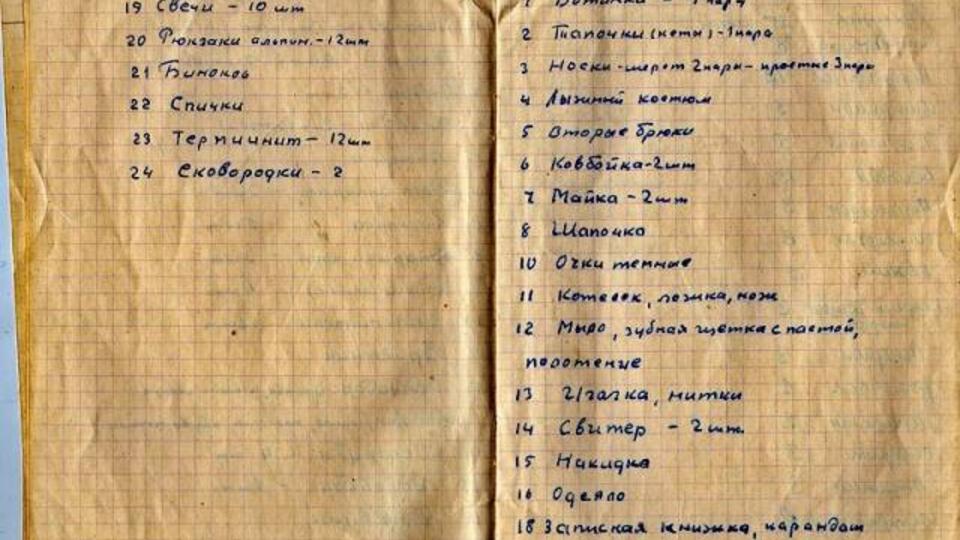 19 Свечи - 10 шт
20 Рюкзаки альпин. - 12шт
21 Бинокль
22 Спички
23 - 12шт
24 Сковородки - 2
1 Ботинки - 1 пару
2 Тапочки (кеты) - 1 пара
3 Носки - шерст 2 пары - простые 3 пары
4 Лыжный костюм
5 Вторые брюки
6 Ковбойка - 2 шт
7 Майка - 2 шт
8 Шапочка
10 Очки темные
11 Котелок, ложка, нож
12 Мыло, зубная щетка с пастой,
полотенце
13 Иголка, нитки
14 Свитер - 2 шт.
15 Накидка
16 Одеяло
18 Записная книжка, карандаш